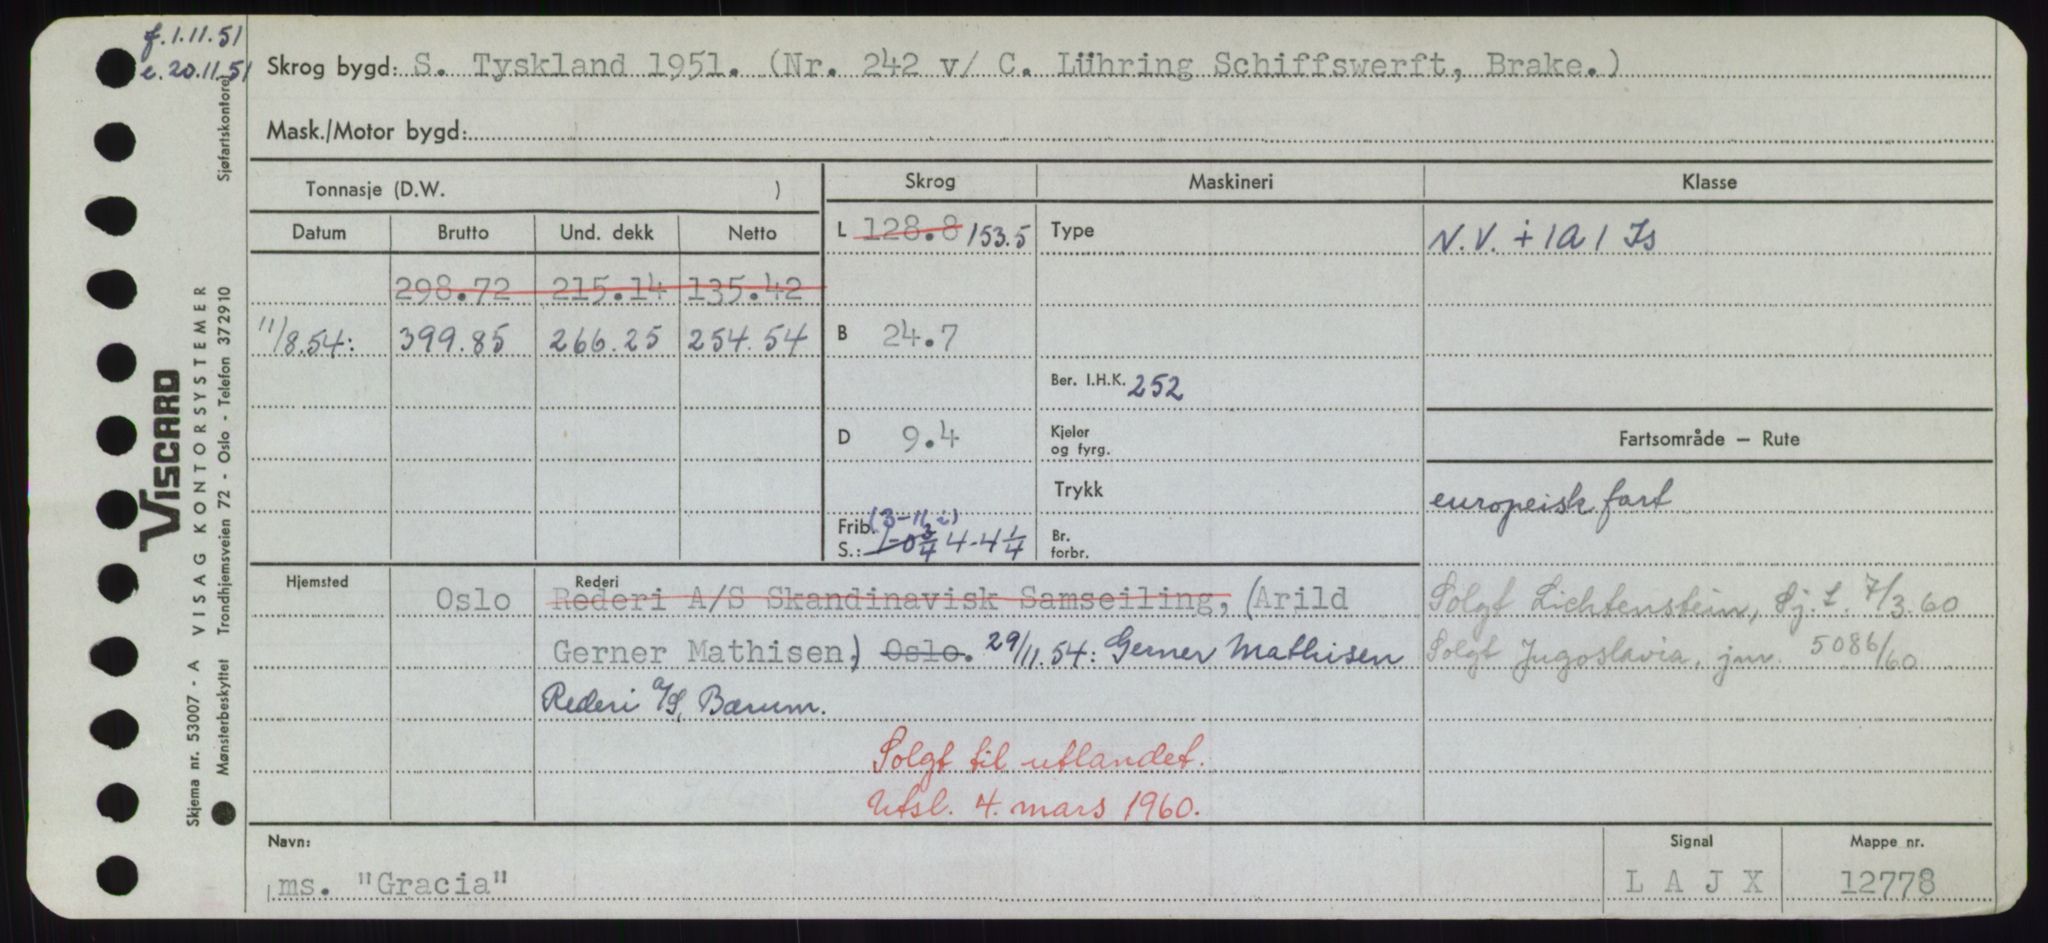 f. 1.11.51
e. 20.11.51
Skrog bygd: S. Tyskland 1951. (Nr. 242 v/ C. Lühring Schiffswerft, Brake.)
Mask./Motor bygd:
Tonnasje (D.W. )
Skrog Maskineri Klasse
Datum Brutto Und. dekk Netto
L 128.8 153.5 Type N.V. + 1A1 Is
298.72 215.14 135.42
11/8.54: 399.85 266.25 254.54
B 24.7
Ber. I.H.K. 252
D 9.4
Kjeler og fyrg.
Fartsområde — Rute
Trykk
europeisk fart
Frib. S.: (3-11 1-0 3/4 4-4 1/4
Br. forbr.
Hjemsted Rederi
Oslo Rederi A/S Skandinavisk Samseiling, (Arild
Solgt Lichtenstein, Sj. L. 7/3.60
Gerner Mathisen) Oslo. 29/11.54: Gerner Mathisen
Solgt Jugoslavia, jnr. 5086/60
Rederi A/S, Bærum.
Solgt til utlandet.
Utsl. 4. mars 1960.
Navn: Signal Mappe nr.
ms. "Gracia" L A J X 12778
VISCARD
A VISAG KONTORSYSTEMER
Skjema nr. 53007 - A
Mønsterbeskyttet Trondhjemsveien 72 - Oslo - Telefon 37 29 10
Sjøfartskontoret